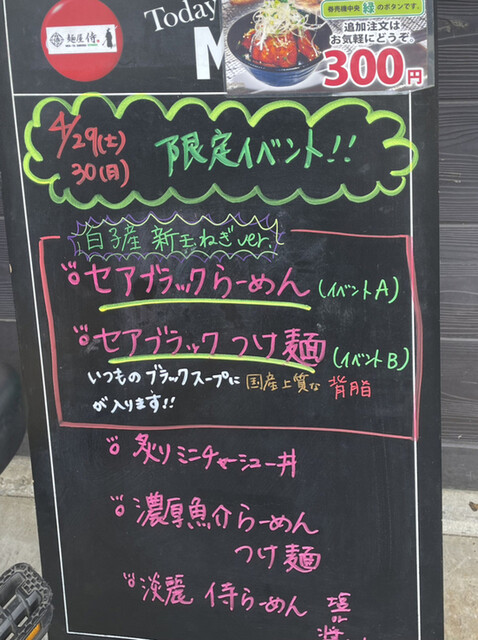 麺屋 侍。
Today
M
券売機中央 緑 のボタンです。
追加注文は
お気軽にどうぞ。
300円
4/29(土)
30(日)
限定イベント!!
白子産 新玉ねぎver.
セアブラックらーめん (イベントA)
セアブラック つけ麺 (イベントB)
いつものブラックスープに 国産上質な 背脂
が入ります!!
炙りミニチャーシュー丼
濃厚魚介らーめん
つけ麺
淡麗 侍らーめん 塩
or
醤